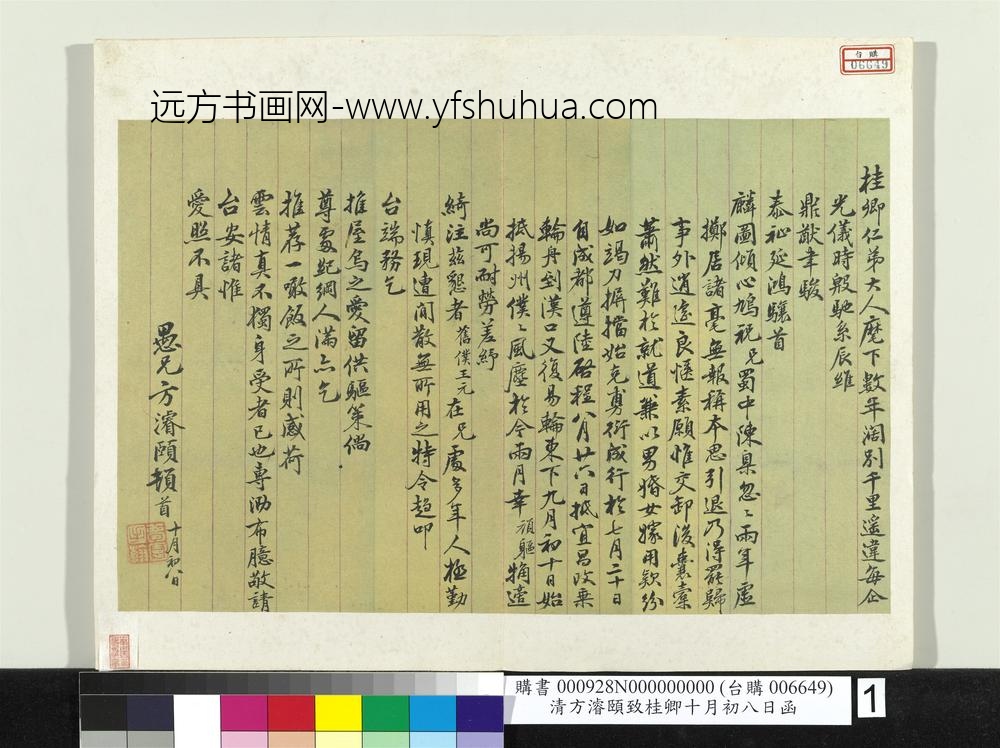 远方书画网-www.yfshuhua.com
台購
06649
桂卿仁弟大人麾下數年闊別千里遥違每企
光儀時殷馳系辰維
鼎猷聿駿
泰祉延鴻驤首
麟圖傾心鳩祝兄蜀中陳臬忽〻兩年虛
擲居諸毫無報稱本思引退乃得罷歸
事外逍遙良愜素願惟交卸後囊橐
蕭然難於就道兼以男婚女嫁用款紛
如竭力摒擋始克勇行成行於七月二十日
自成都遵陸啓程八月廿六日抵宜昌改乘
輪舟到漢口又復易輪東下九月初十日始
抵揚州僕〻風塵於今兩月幸頑軀犕適
尚可耐勞差紓
綺注茲懇者舊僕王元在兄處多年人極勤
慎現遭閒散無所用之特令趨叩
台端務乞
推屋烏之愛留供驅策倘
尊處紀綱人滿亦乞
推荐一噉飯之所則感荷
雲情真不獨身受者已也專泐布臆敬請
台安諸惟
愛照不具
愚兄方濬頤頓首 十月初八日
購書 000928N000000000 (台購 006649)
清方濬頤致桂卿十月初八日函
1